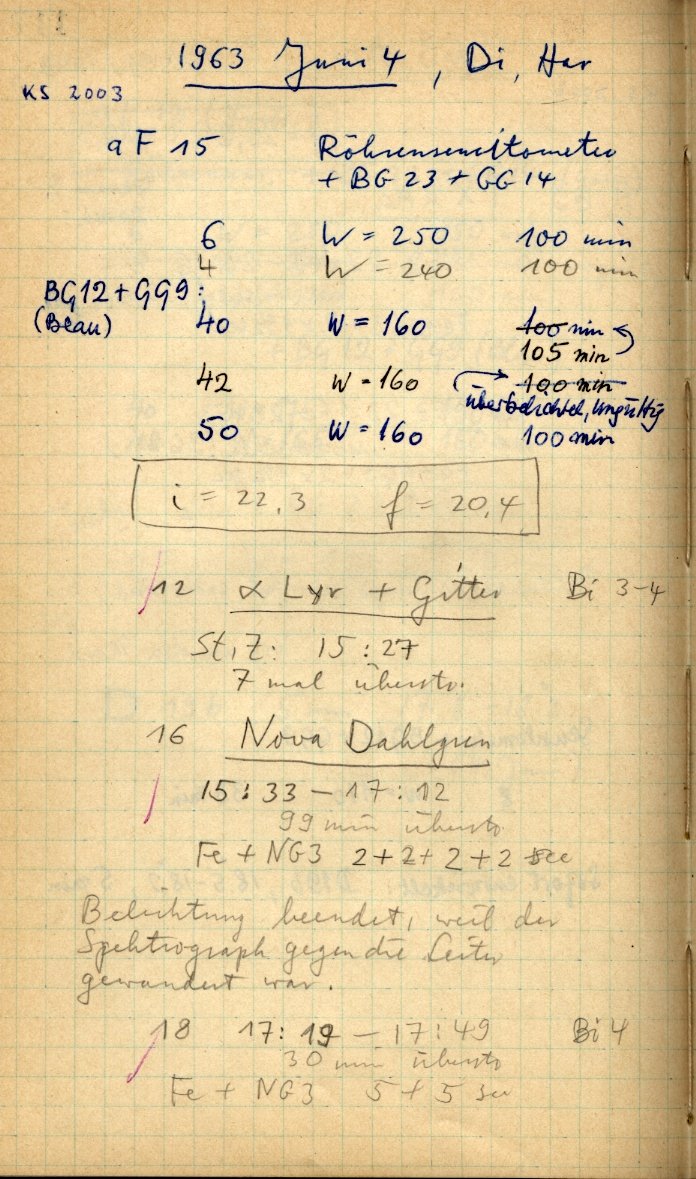 1963 Juni 4, Di, Har
KS 2003
aF 15 Röhrensensitometer
+ BG 23 + GG 14
6 W = 250 100 min
4 W = 240 100 min
BG12 + GG9:
(Blau) 40 W = 160 100 min
105 min
42 W = 160 100 min
überbelichtet, ungültig
50 W = 160 100 min
i = 22,3 f = 20,4
12 α Lyr + Gitter Bi 3-4
St.Z: 15:27
7 mal übersto.
16 Nova Dahlgren
15:33 – 17:12
99 min übersto
Fe + NG3 2+2+2+2 sec
Belichtung beendet, weil der
Spektrograph gegen die Leiter
gewandert war.
18 17:19 – 17:49 Bi 4
30 min übersto
Fe + NG3 5 + 5 sec